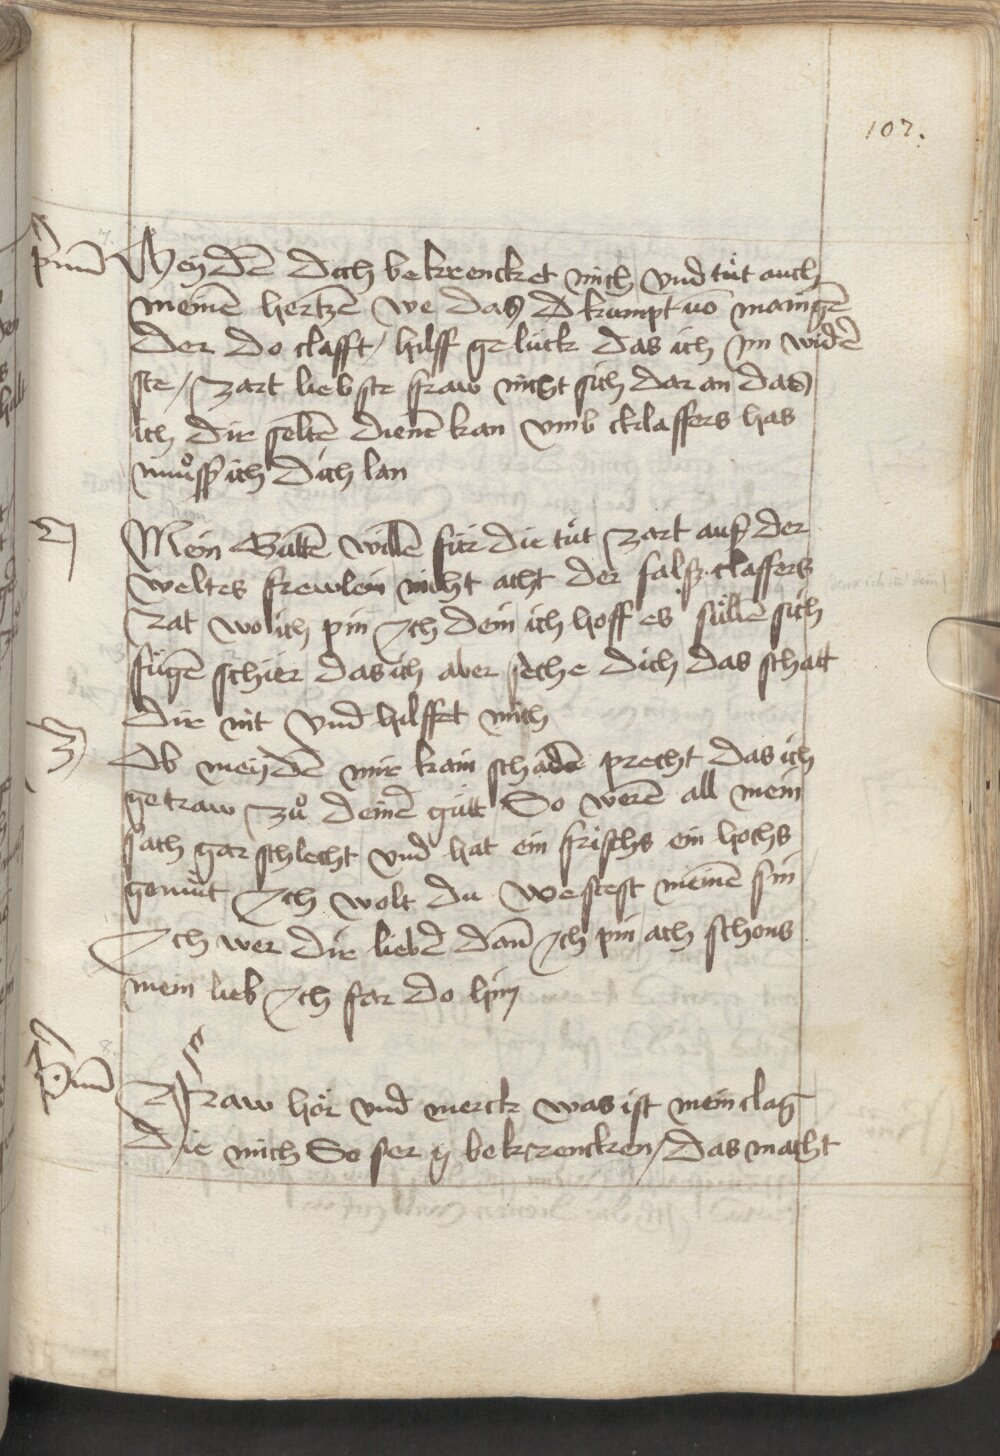 107.
Meyden dich bekrencket mich vnd tuͤt auch
meinē hertzē we das Dkumpt vō maingē
der do clafft / hilff gelück das ich im widē
ste / zart liebste fraw nicht sich dar an das
ich dir seltē dienē kan vmb cklaffers has
muͦsß ich dich lan
2
Mein Gutē willē für die tuͤt zart ausß der
weltes frewlein nicht acht der falsß claffers
rat wo ich pin Ich dein ich hoff es suͤllē sich
fügē schier das ich aber seche dich das schatt
dir nit vnd hilffet mich
3
Ob meydē mir kain schadē precht das ich
getraw zuͦ deinē gütt So werē all mein
sach gar schlecht vnd hat ein frischs ein hochs
gemuͤt Ich wolt du westest meinē sin
Ich wer dir liebē dañ Ich pin ach schons
mein lieb Ich far do hin
Fraw hör vnd merck was ist mein clag
Die mich So ser y bekrencken / das macht